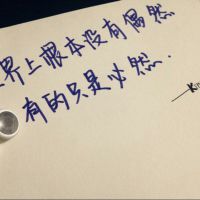 界上根本没有偶然
有的只是必然.